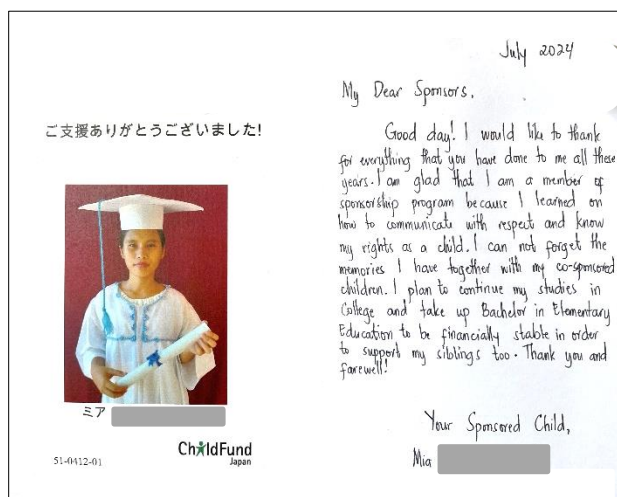 ご支援ありがとうございました!
ミア
51-0412-01
ChildFund
Japan
July 2024
My Dear Sponsors,
Good day! I would like to thank
for everything that you have done to me all these
years. I am glad that I am a member of
sponsorship program because I learned on
how to communicate with respect and know
my rights as a child. I can not forget the
memories I have together with my co-sponsored
children. I plan to continue my studies in
College and take up Bachelor in Elementary
Education to be financially stable in order
to support my siblings too. Thank you and
farewell!
Your Sponsored Child,
Mia